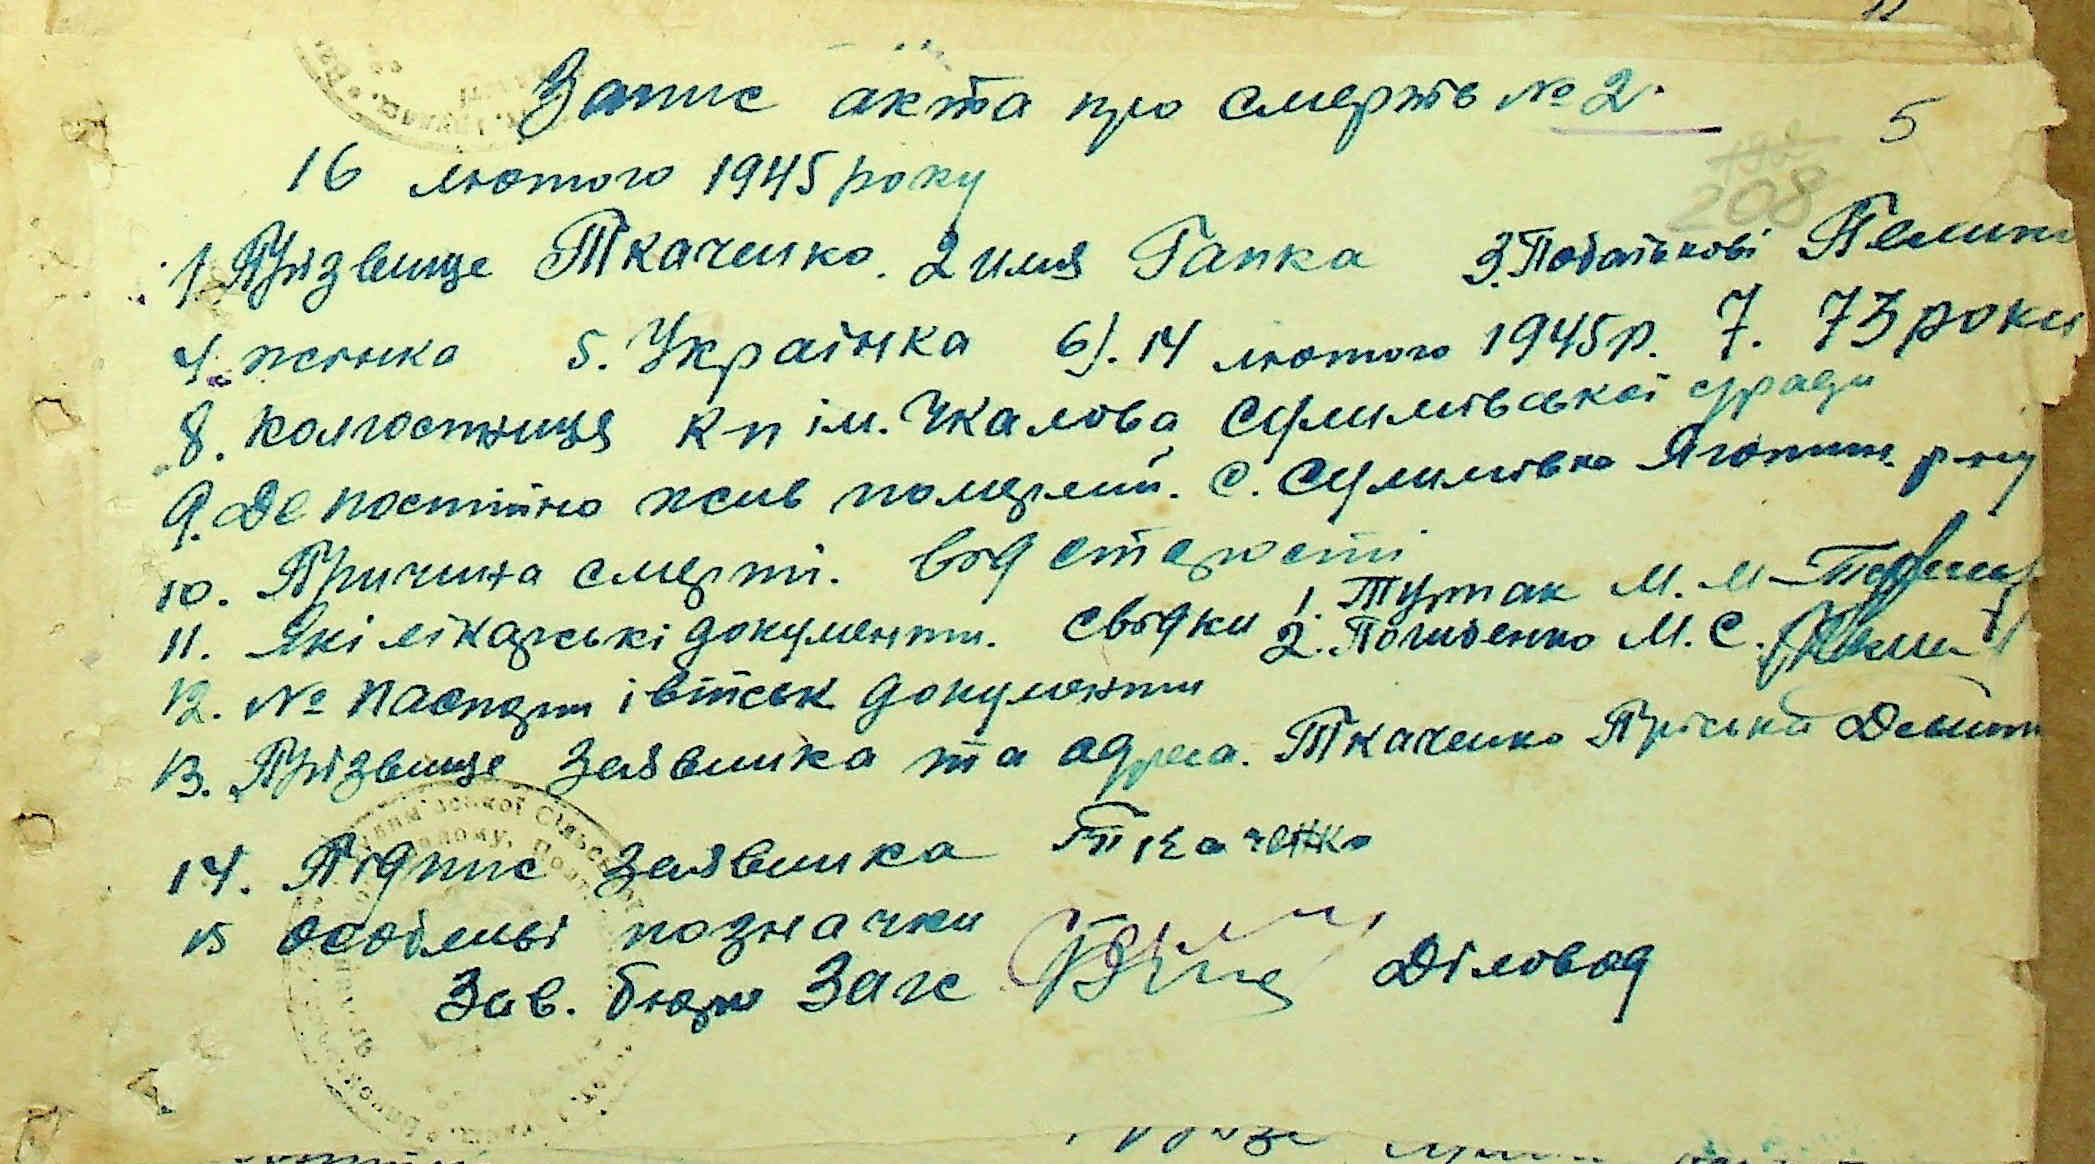 5
Запис акта про смерть № 2.
208
16 лютого 1945 року
1 Прізвище Ткаченко. 2 имя Гапка 3. Побатькові
4. жінка 5. Українка 6). 14 лютого 1945 р. 7. 73 роки
8. колгоспниця к-п ім. Чкалова Сулимівської с/ради
9. Де постійно жив померлий. с. Сулимівка Яготин. р-ну
10. Причина смерті. від старості
11. Які лікарські документи. Свідки 1. Туртак М. М.
2. М. С.
12. № паспорти і військ документи
13. Прізвище Заявника та адреса. Ткаченко Пріська
14. Підпис Заявника Ткаченко
15 Особливі позначки
Зав. бюро Загс Діловод